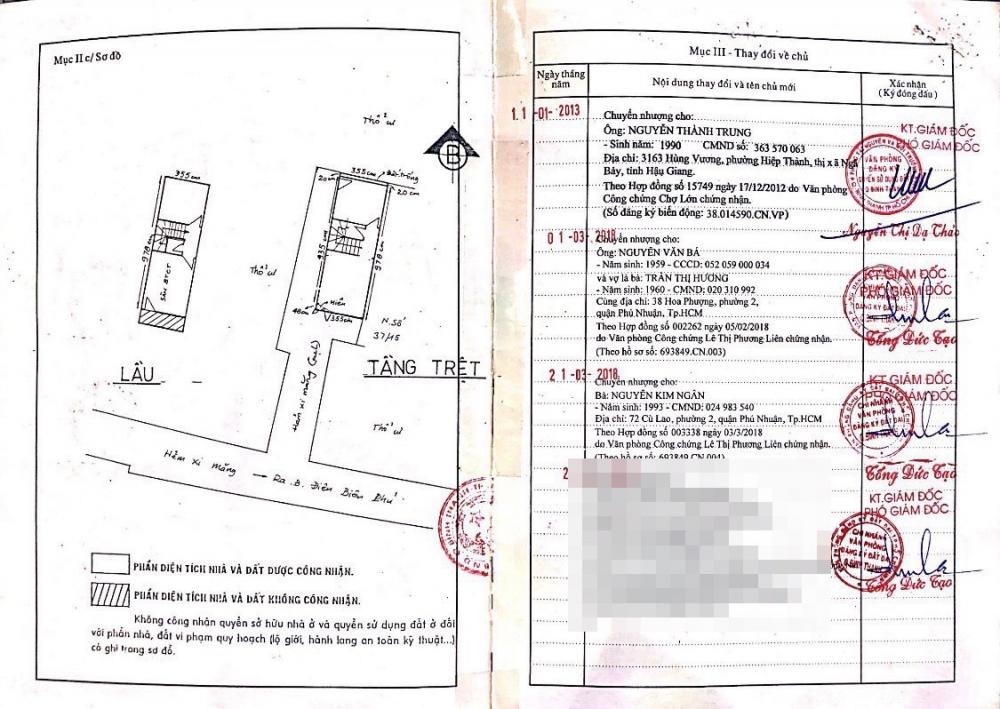 Mục II c/ Sơ đồ
Thổ cư
B
355 cm
978 cm
SÂN BTCT
LẦU
355 cm
20 cm
Đất trống
20 cm
935 cm
978 cm
Thổ cư
Hiên
40 cm
355 cm
N. Số
37/15
TẦNG TRỆT
Hẻm xi măng
Thổ cư
Hẻm xi măng → Ra Đ. Điện Biên Phủ
PHẦN DIỆN TÍCH NHÀ VÀ ĐẤT ĐƯỢC CÔNG NHẬN.
PHẦN DIỆN TÍCH NHÀ VÀ ĐẤT KHÔNG CÔNG NHẬN.
Không công nhận quyền sở hữu nhà ở và quyền sử dụng đất ở đối
với phần nhà, đất vi phạm quy hoạch (lộ giới, hành lang an toàn kỹ thuật...)
có ghi trong sơ đồ.
Mục III - Thay đổi về chủ
Ngày tháng
năm
Nội dung thay đổi và tên chủ mới
Xác nhận
(Ký đóng dấu)
11-01-2013
Chuyển nhượng cho:
Ông: NGUYỄN THÀNH TRUNG
- Sinh năm: 1990 CMND số: 363 570 063
Địa chỉ: 3163 Hùng Vương, phường Hiệp Thành, thị xã Ngã
Bảy, tỉnh Hậu Giang.
Theo Hợp đồng số 15749 ngày 17/12/2012 do Văn phòng
Công chứng Chợ Lớn chứng nhận.
(Số đăng ký biến động: 38.014590.CN.VP)
KT.GIÁM ĐỐC
PHÓ GIÁM ĐỐC
VĂN PHÒNG
ĐĂNG KÝ
QUYỀN SỬ DỤNG ĐẤT
Q BÌNH THẠNH
Nguyễn Thị Dạ Thảo
01-03-2018
Chuyển nhượng cho:
Ông: NGUYỄN VĂN BÁ
- Năm sinh: 1959 - CCCD: 052 059 000 034
và vợ là bà: TRẦN THỊ HƯƠNG
- Năm sinh: 1960 - CMND: 020 310 992
Cùng địa chỉ: 38 Hoa Phượng, phường 2,
quận Phú Nhuận, Tp.HCM
Theo Hợp đồng số 002262 ngày 05/02/2018
do Văn phòng Công chứng Lê Thị Phương Liên chứng nhận.
(Theo hồ sơ số: 693849.CN.003)
KT.GIÁM ĐỐC
PHÓ GIÁM ĐỐC
VĂN PHÒNG
ĐĂNG KÝ ĐẤT ĐAI
Tống Đức Tạo
21-03-2018
Chuyển nhượng cho:
Bà: NGUYỄN KIM NGÂN
- Năm sinh: 1993 - CMND: 024 983 540
Địa chỉ: 72 Cù Lao, phường 2, quận Phú Nhuận, Tp.HCM
Theo Hợp đồng số 003338 ngày 03/3/2018
do Văn phòng Công chứng Lê Thị Phương Liên chứng nhận.
(Theo hồ sơ số: 693849.CN.004)
KT.GIÁM ĐỐC
PHÓ GIÁM ĐỐC
CHI NHÁNH
VĂN PHÒNG
ĐĂNG KÝ ĐẤT ĐAI
Tống Đức Tạo
2
KT.GIÁM ĐỐC
PHÓ GIÁM ĐỐC
CHI NHÁNH
VĂN PHÒNG
ĐĂNG KÝ ĐẤT ĐAI
Q BÌNH THẠNH
Tống Đức Tạo